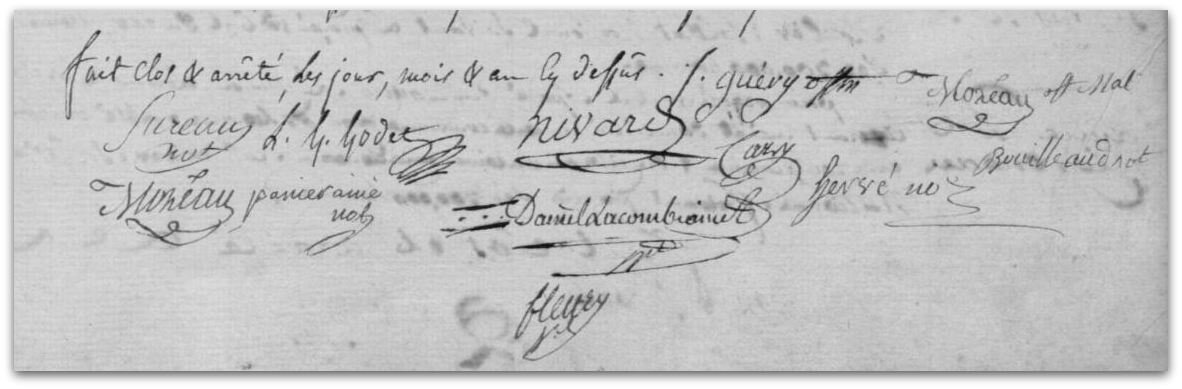 fait clos & arrêté, les jour, mois & an cy dessus. J. guéry offm Moreau off Mal
Sureau not L. G. Godet nivard Cary Bouilleaud not
Moreau panier ainé not Daniel Lacombe ainé Hervé no
Nre
fleury